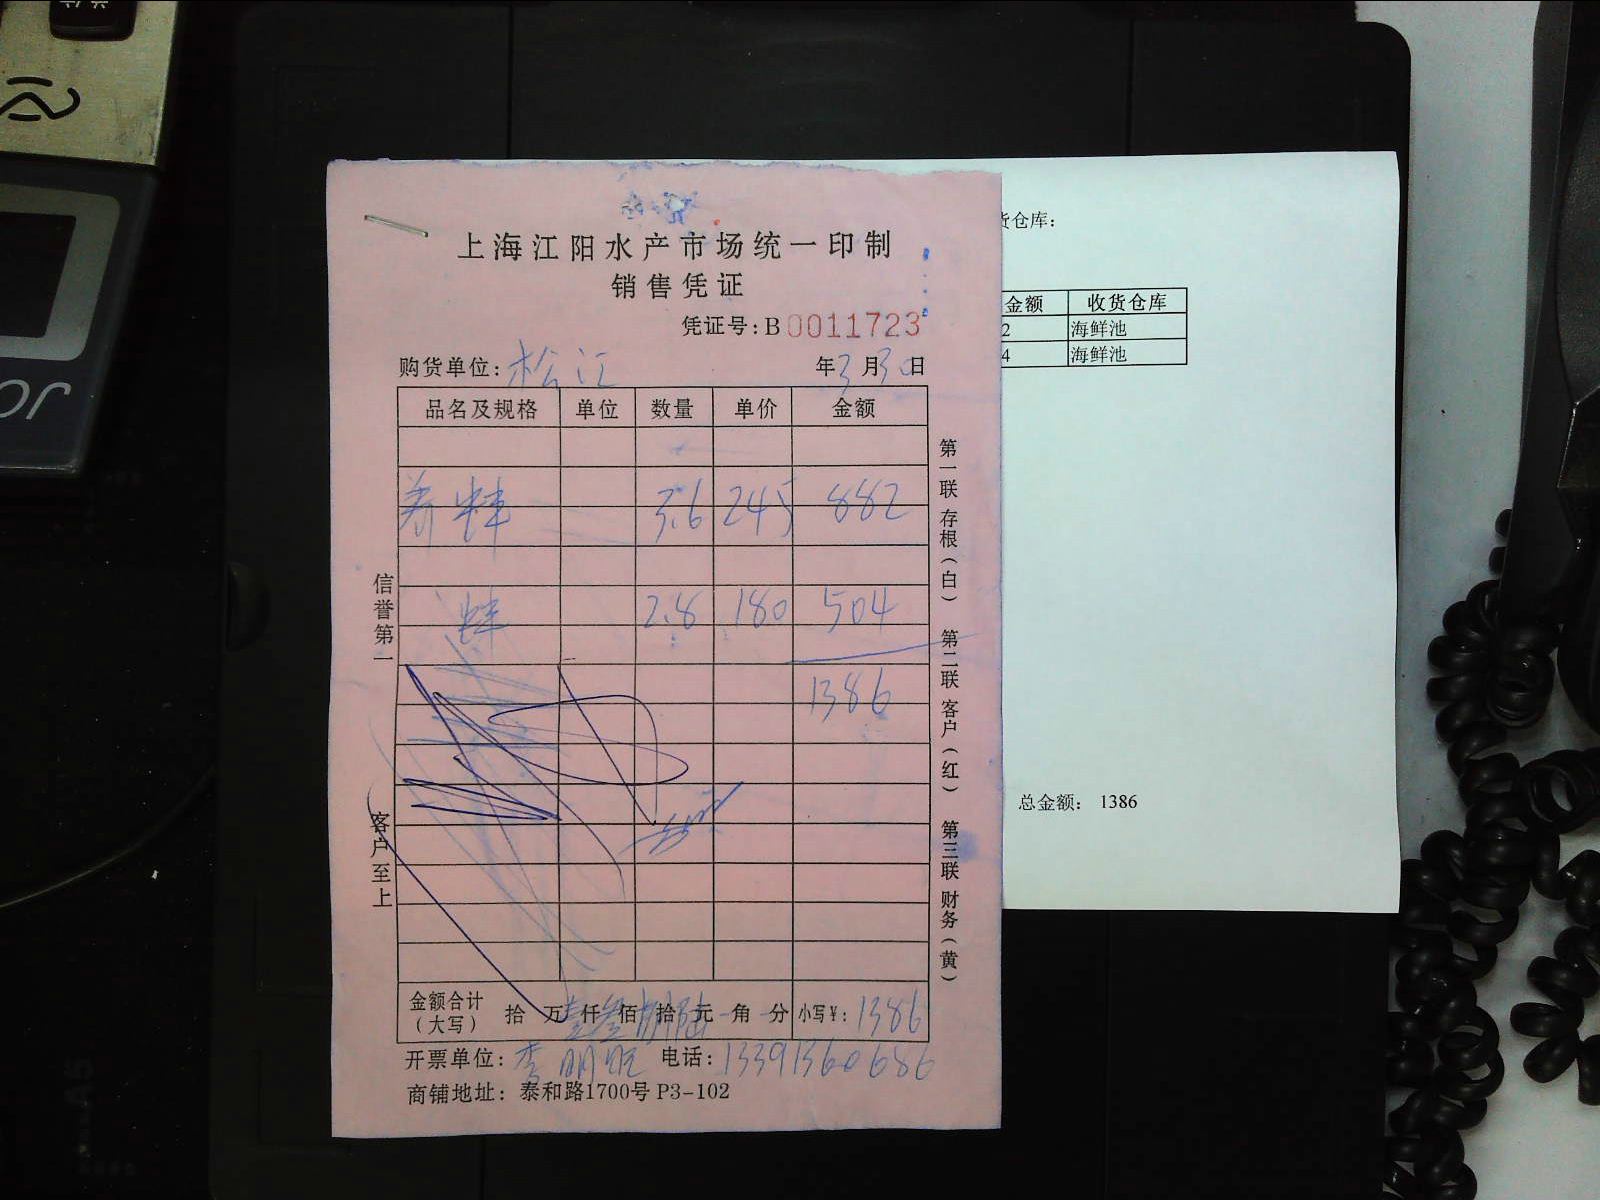 上海江阳水产市场统一印制
销售凭证
凭证号:B 0011723
购货单位: 松江 年3月30日
品名及规格 单位 数量 单价 金额
3.6 245 882
2.8 180 504
1386
金额合计(大写) 拾 万壹仟叁佰捌拾陆元 角 分 小写¥: 1386
开票单位: 李明旺 电话: 13391360686
商铺地址: 泰和路1700号 P3-102
信誉第一
客户至上
第一联 存根(白) 第二联 客户(红) 第三联 财务(黄)
货仓库:
金额 收货仓库
2 海鲜池
4 海鲜池
总金额: 1386